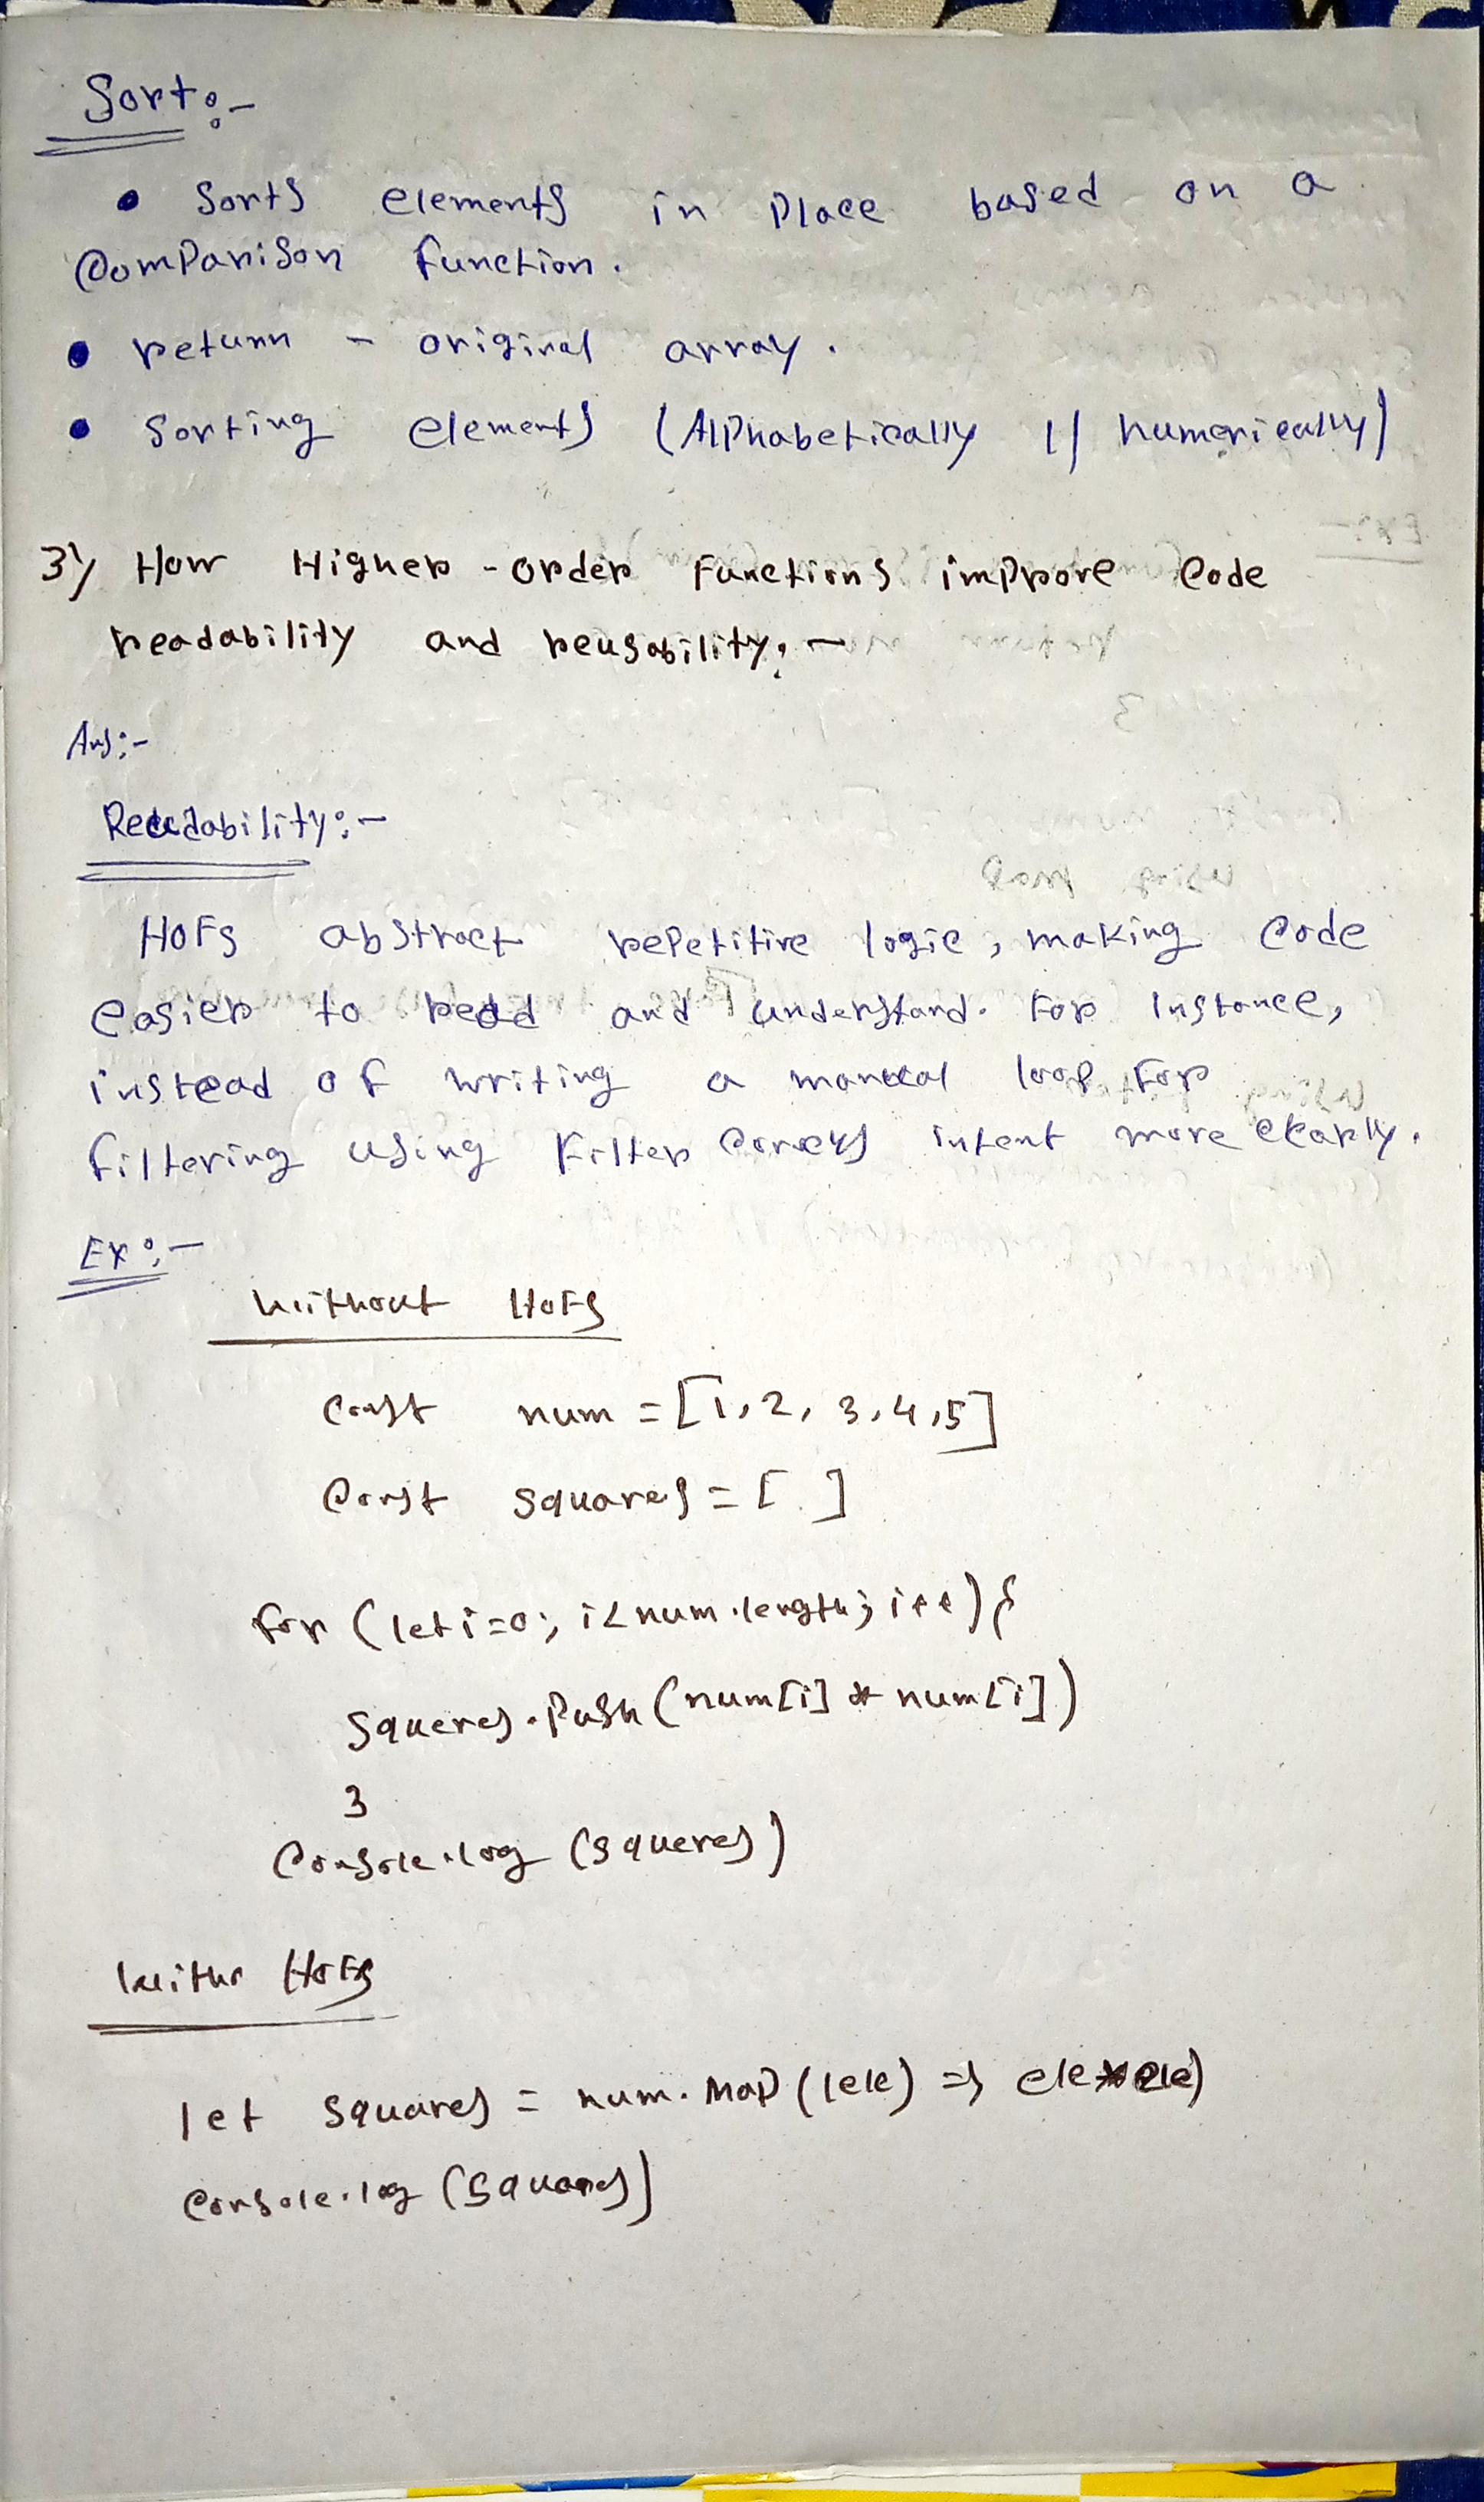 Sort:-
• Sorts elements in place based on a
Comparison function.
• return - original array.
• Sorting elements (Alphabetically || numerically)
3) How Higher-order functions improve code
readability and reusability:-
Ans:-
Readability:-
HOFs abstract repetitive logic, making code
easier to read and understand. For Instance,
instead of writing a manual loop for
filtering using filter conveys intent more clearly.
Ex:-
Without HOFs
const num = [1, 2, 3, 4, 5]
const squares = [ ]
for (let i=0; i<num.length; i++) {
squeres.push(num[i] * num[i])
}
console.log (squeres)
With HOFs
let squares = num.map((ele) => ele*ele)
console.log (squares)